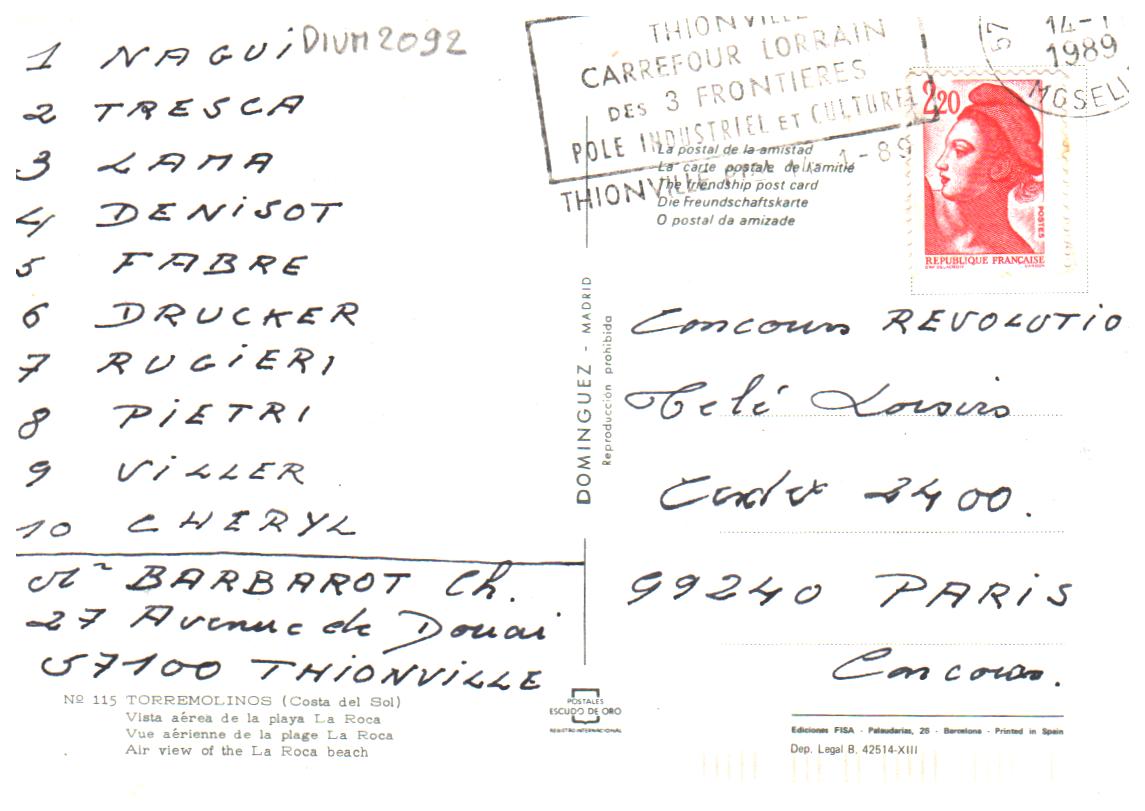 1 NAGUi
DIVM2092
2 TRESCA
3 LAMA
4 DENiSOT
5 FABRE
6 DRUCKER
7 RUGiERI
8 PiETRI
9 ViLLER
10 CHERYL
Mr BARBAROT Ch.
27 Avenue de Douai
57100 THiONViLLE
Nº 115 TORREMOLINOS (Costa del Sol)
Vista aérea de la playa La Roca
Vue aérienne de la plage La Roca
Air view of the La Roca beach
THIONVILLE
CARREFOUR LORRAIN
DES 3 FRONTIERES
POLE INDUSTRIEL ET CULTUREL
THIONVILLE
1-89
57
14-1
1989
MOSELLE
2,20
POSTES
REPUBLIQUE FRANÇAISE
La postal de la amistad
La carte postale de l'amitié
The friendship post card
Die Freundschaftskarte
O postal da amizade
DOMINGUEZ - MADRID
Reproducción prohibida
Concours REVOLUTIO
Télé Loisirs
Cedex 2400.
99240 PARiS
Concours.
POSTALES
ESCUDO DE ORO
REGISTRO INTERNACIONAL
Ediciones FISA - Palaudarias, 26 - Barcelona - Printed in Spain
Dep. Legal B. 42514-XIII